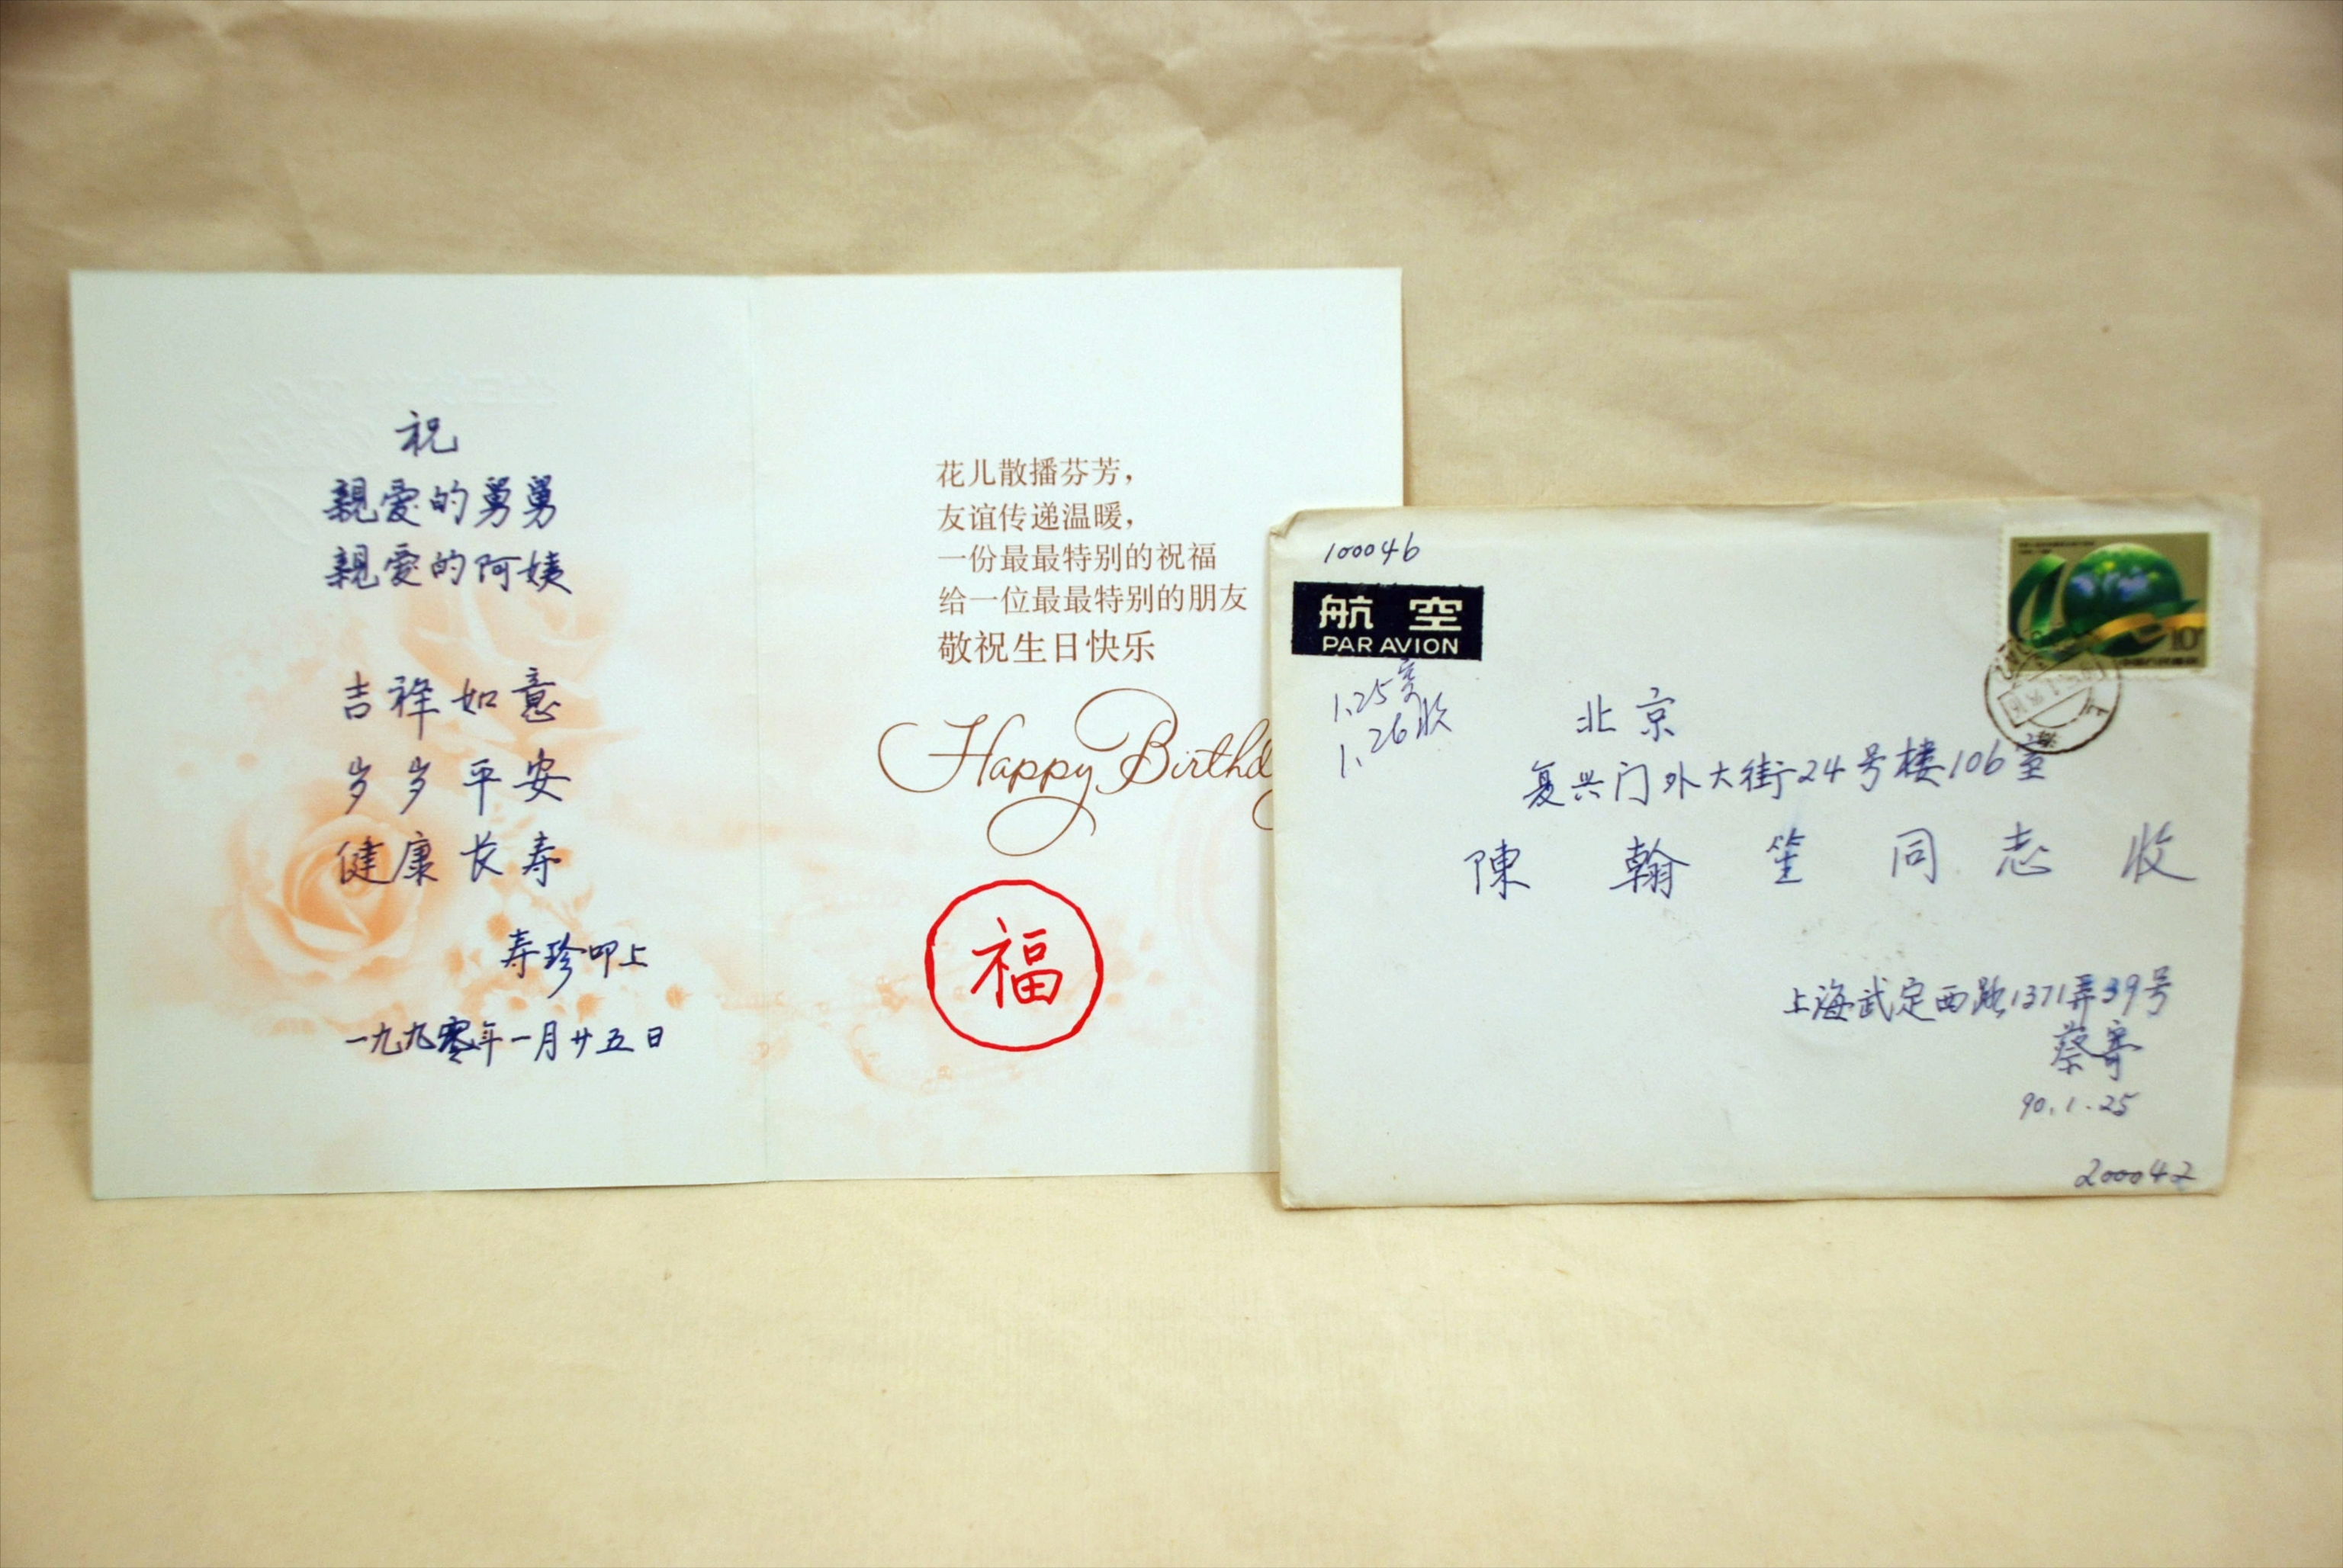 祝
親爱的舅舅
親爱的阿姨
吉祥如意
岁岁平安
健康长寿
寿珍叩上
一九九零年一月廿五日
花儿散播芬芳，
友谊传递温暖，
一份最最特别的祝福
给一位最最特别的朋友
敬祝生日快乐
Happy Birthd
福
100046
航空
PAR AVION
1.25
1.26收
北京
复兴门外大街24号楼106室
陳翰笙同志收
上海武定西路1371弄39号
蔡寄
90.1.25
200042
10